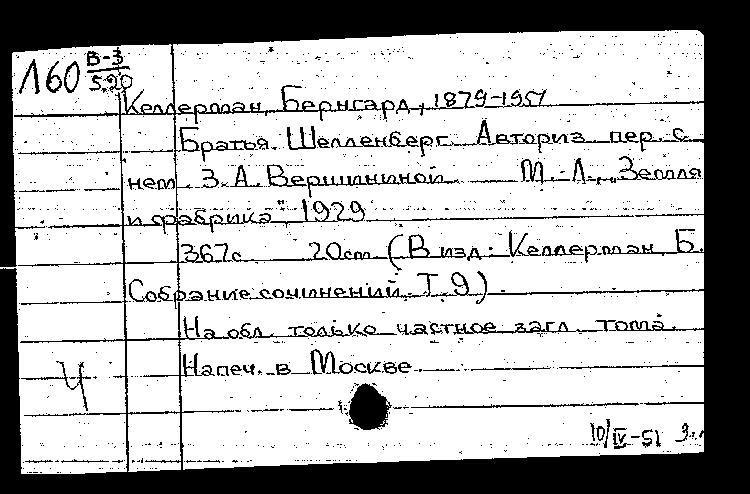 Л60 В-3
520
Келлерман, Бернгард, 1879-1951
Братья Шелленберг. Авториз. пер. с
нем. З. А. Вершининой. М.-Л., "Земля
и фабрика", 1929
367с. 20см. (В изд.: Келлерман, Б.
Собрание сочинений. Т. 9).
На обл. только частное загл. тома.
Напеч. в Москве.
Ч
10/IV-51